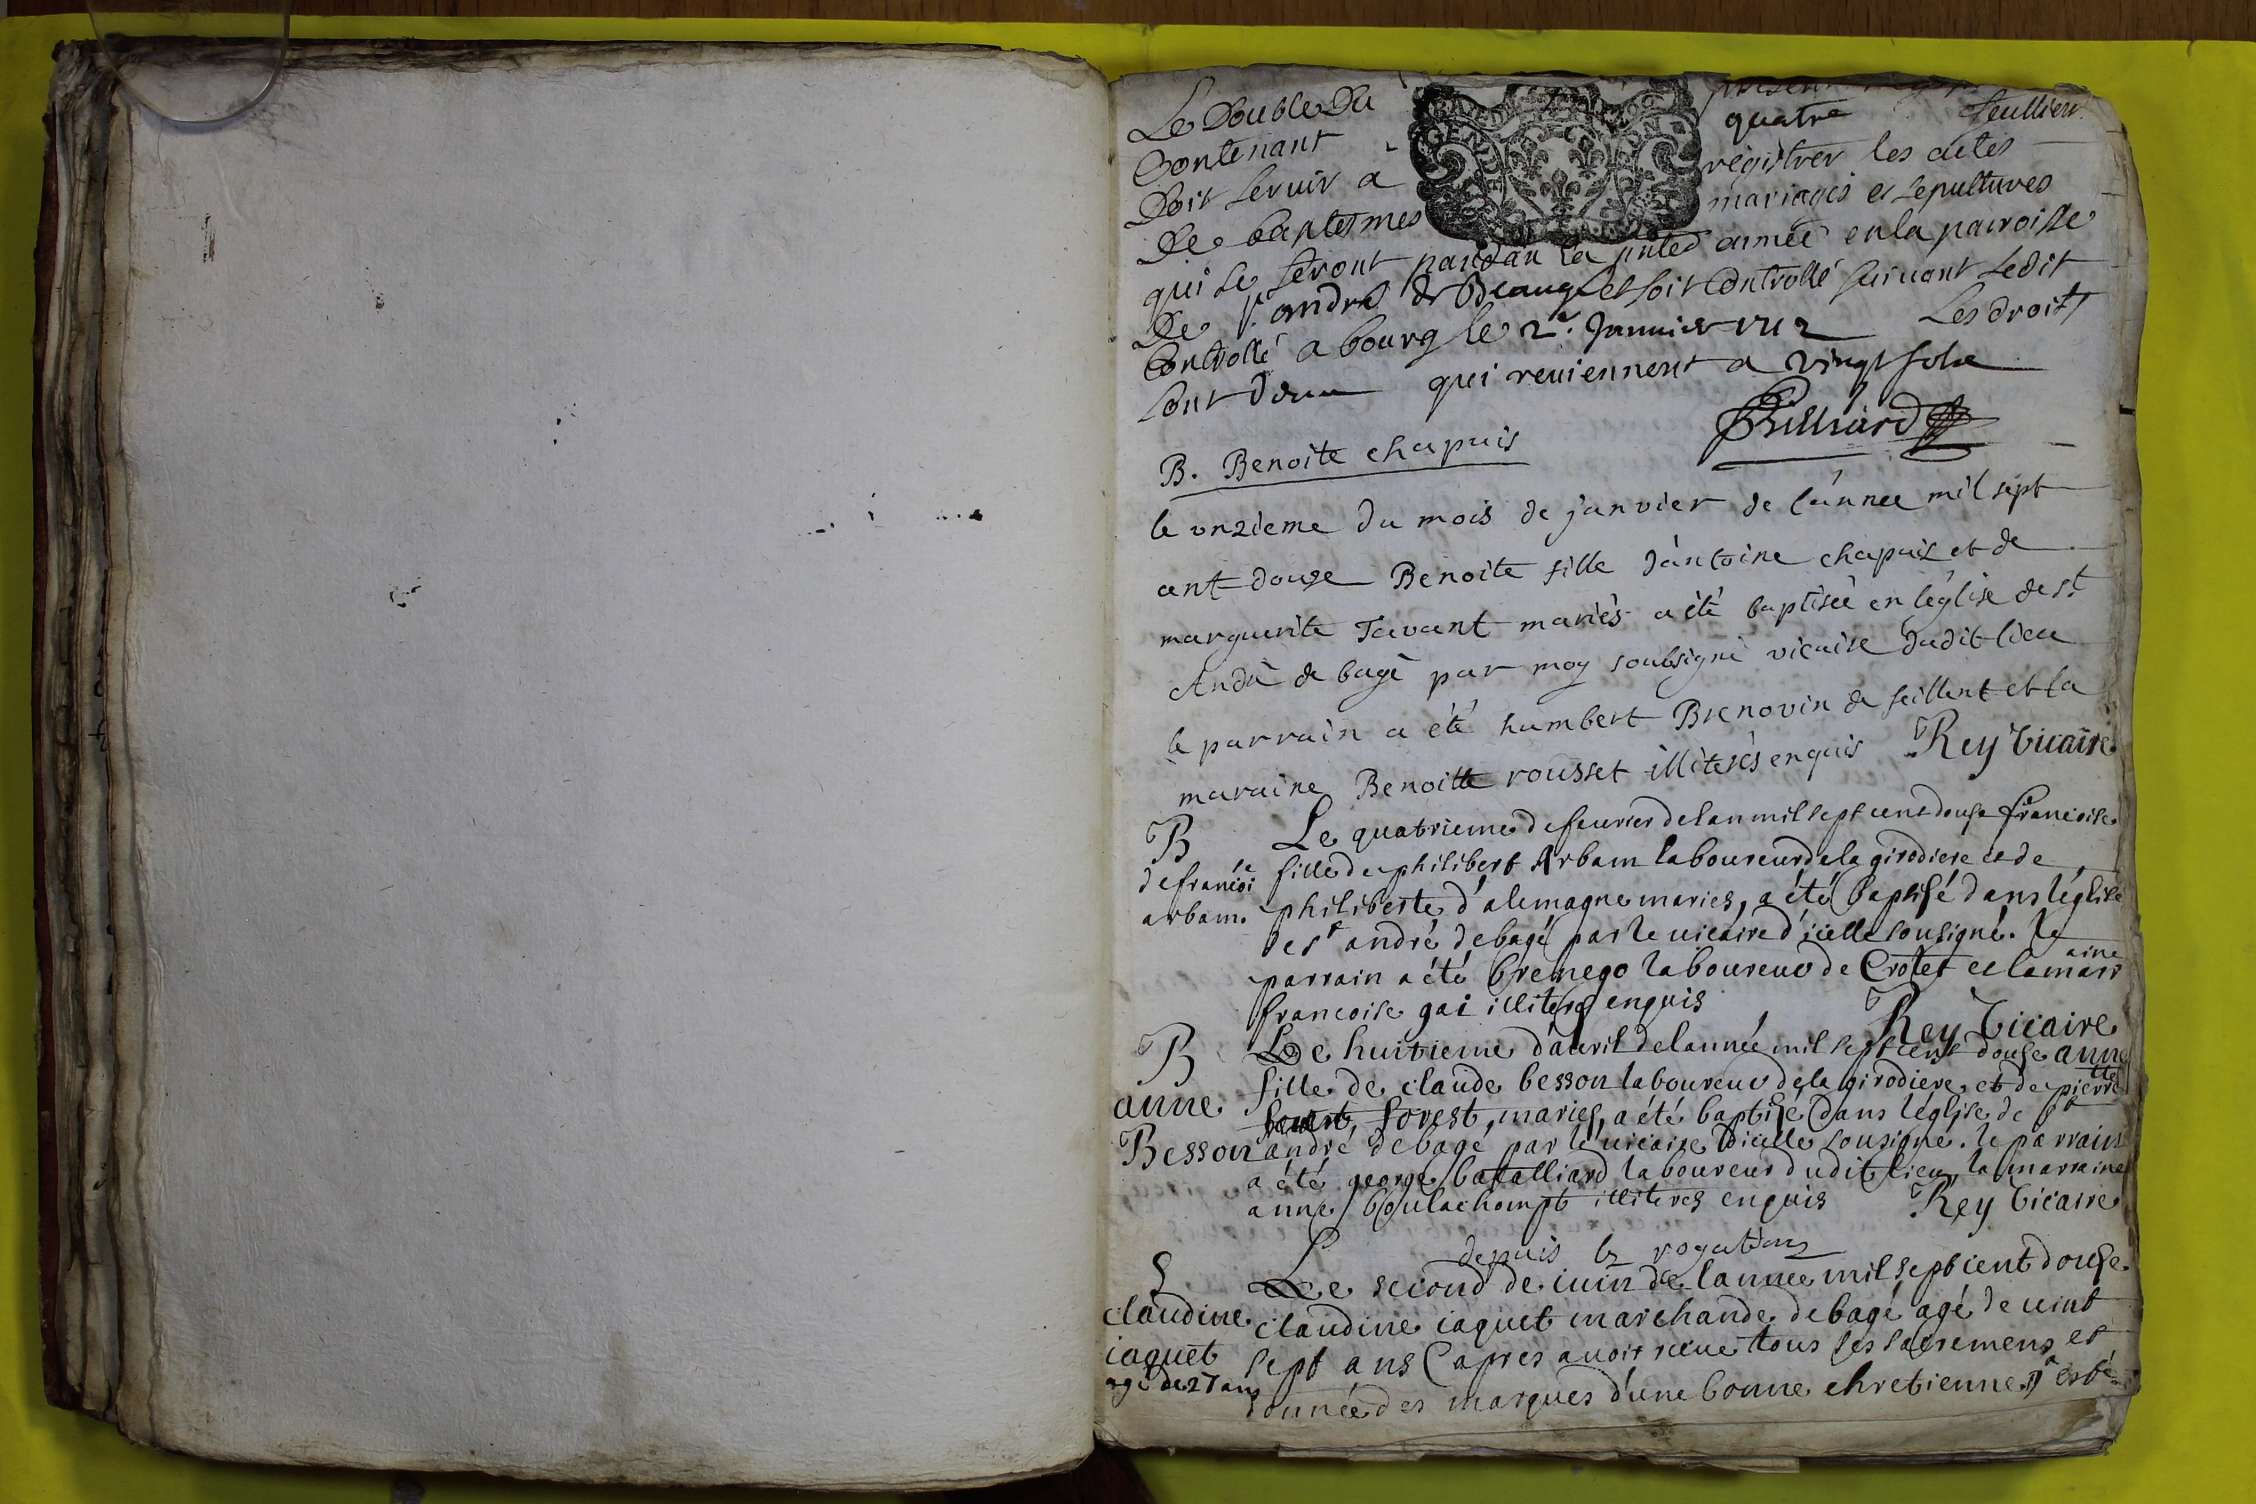 Le Double Du present
Contenant quatre feullietz
Doit servir a registrer les actes
De baptesmes mariages et sepultures
qui se feront pandan la pnted année en la parroisse
De st andré de Beaugé et soit Controllé suivant Ledit
Controllé a bourg le 2e. Janvier 1712 Les droits
sont deux qui reviennent a vingt sols
B. Benoite chapuis
le unzieme du mois de janvier de l'année mil sept
cent douze Benoite fille d'antoine chapuis et de
marguerite Tavant mariés a été baptisée en l'église de st
André de bagé par moy soubsigné vicaire dudit lieu
le parrain a été humbert Brenovin de feillent et la
maraine Benoitte rousset illiterés enquis Rey vicaire
B
de francoi
arbam.
Le quatrieme de feurier de lan mil sept cent douse francoise
fille de philibert Arbam laboureur de la girodiere et de
philiberte d'alemagne maries, a été baptisé dans l'église
de st andré de bagé par le uicaire d'icelle sousigné. le
parrain a été brenego laboureur de Crotet et la marraine
francoise gai illiteres enquis
Rey vicaire
B
anne
Besson
Le huitieme d'auril de lannée mil sept cent douse anne
fille de claude besson laboureur de la girodiere et de pierrette
forest, maries, a été baptisé dans l'église de st
andré de bagé par le uicaire d'icelle sousigné. le parrain
a été george batalliard laboureur dudit lieu, la marraine
anne boulachompt illiteres enquis Rey vicaire
depuis les rogations
S
claudine
iaquet
agé de 27 ans
Le second de iuin de lannee mil sept cient douse
claudine iaquet marchande de bagé agé de uint
sept ans apres auoir receue tous les sacremens et
donnée des marques d'une bonne chretienne, a esté